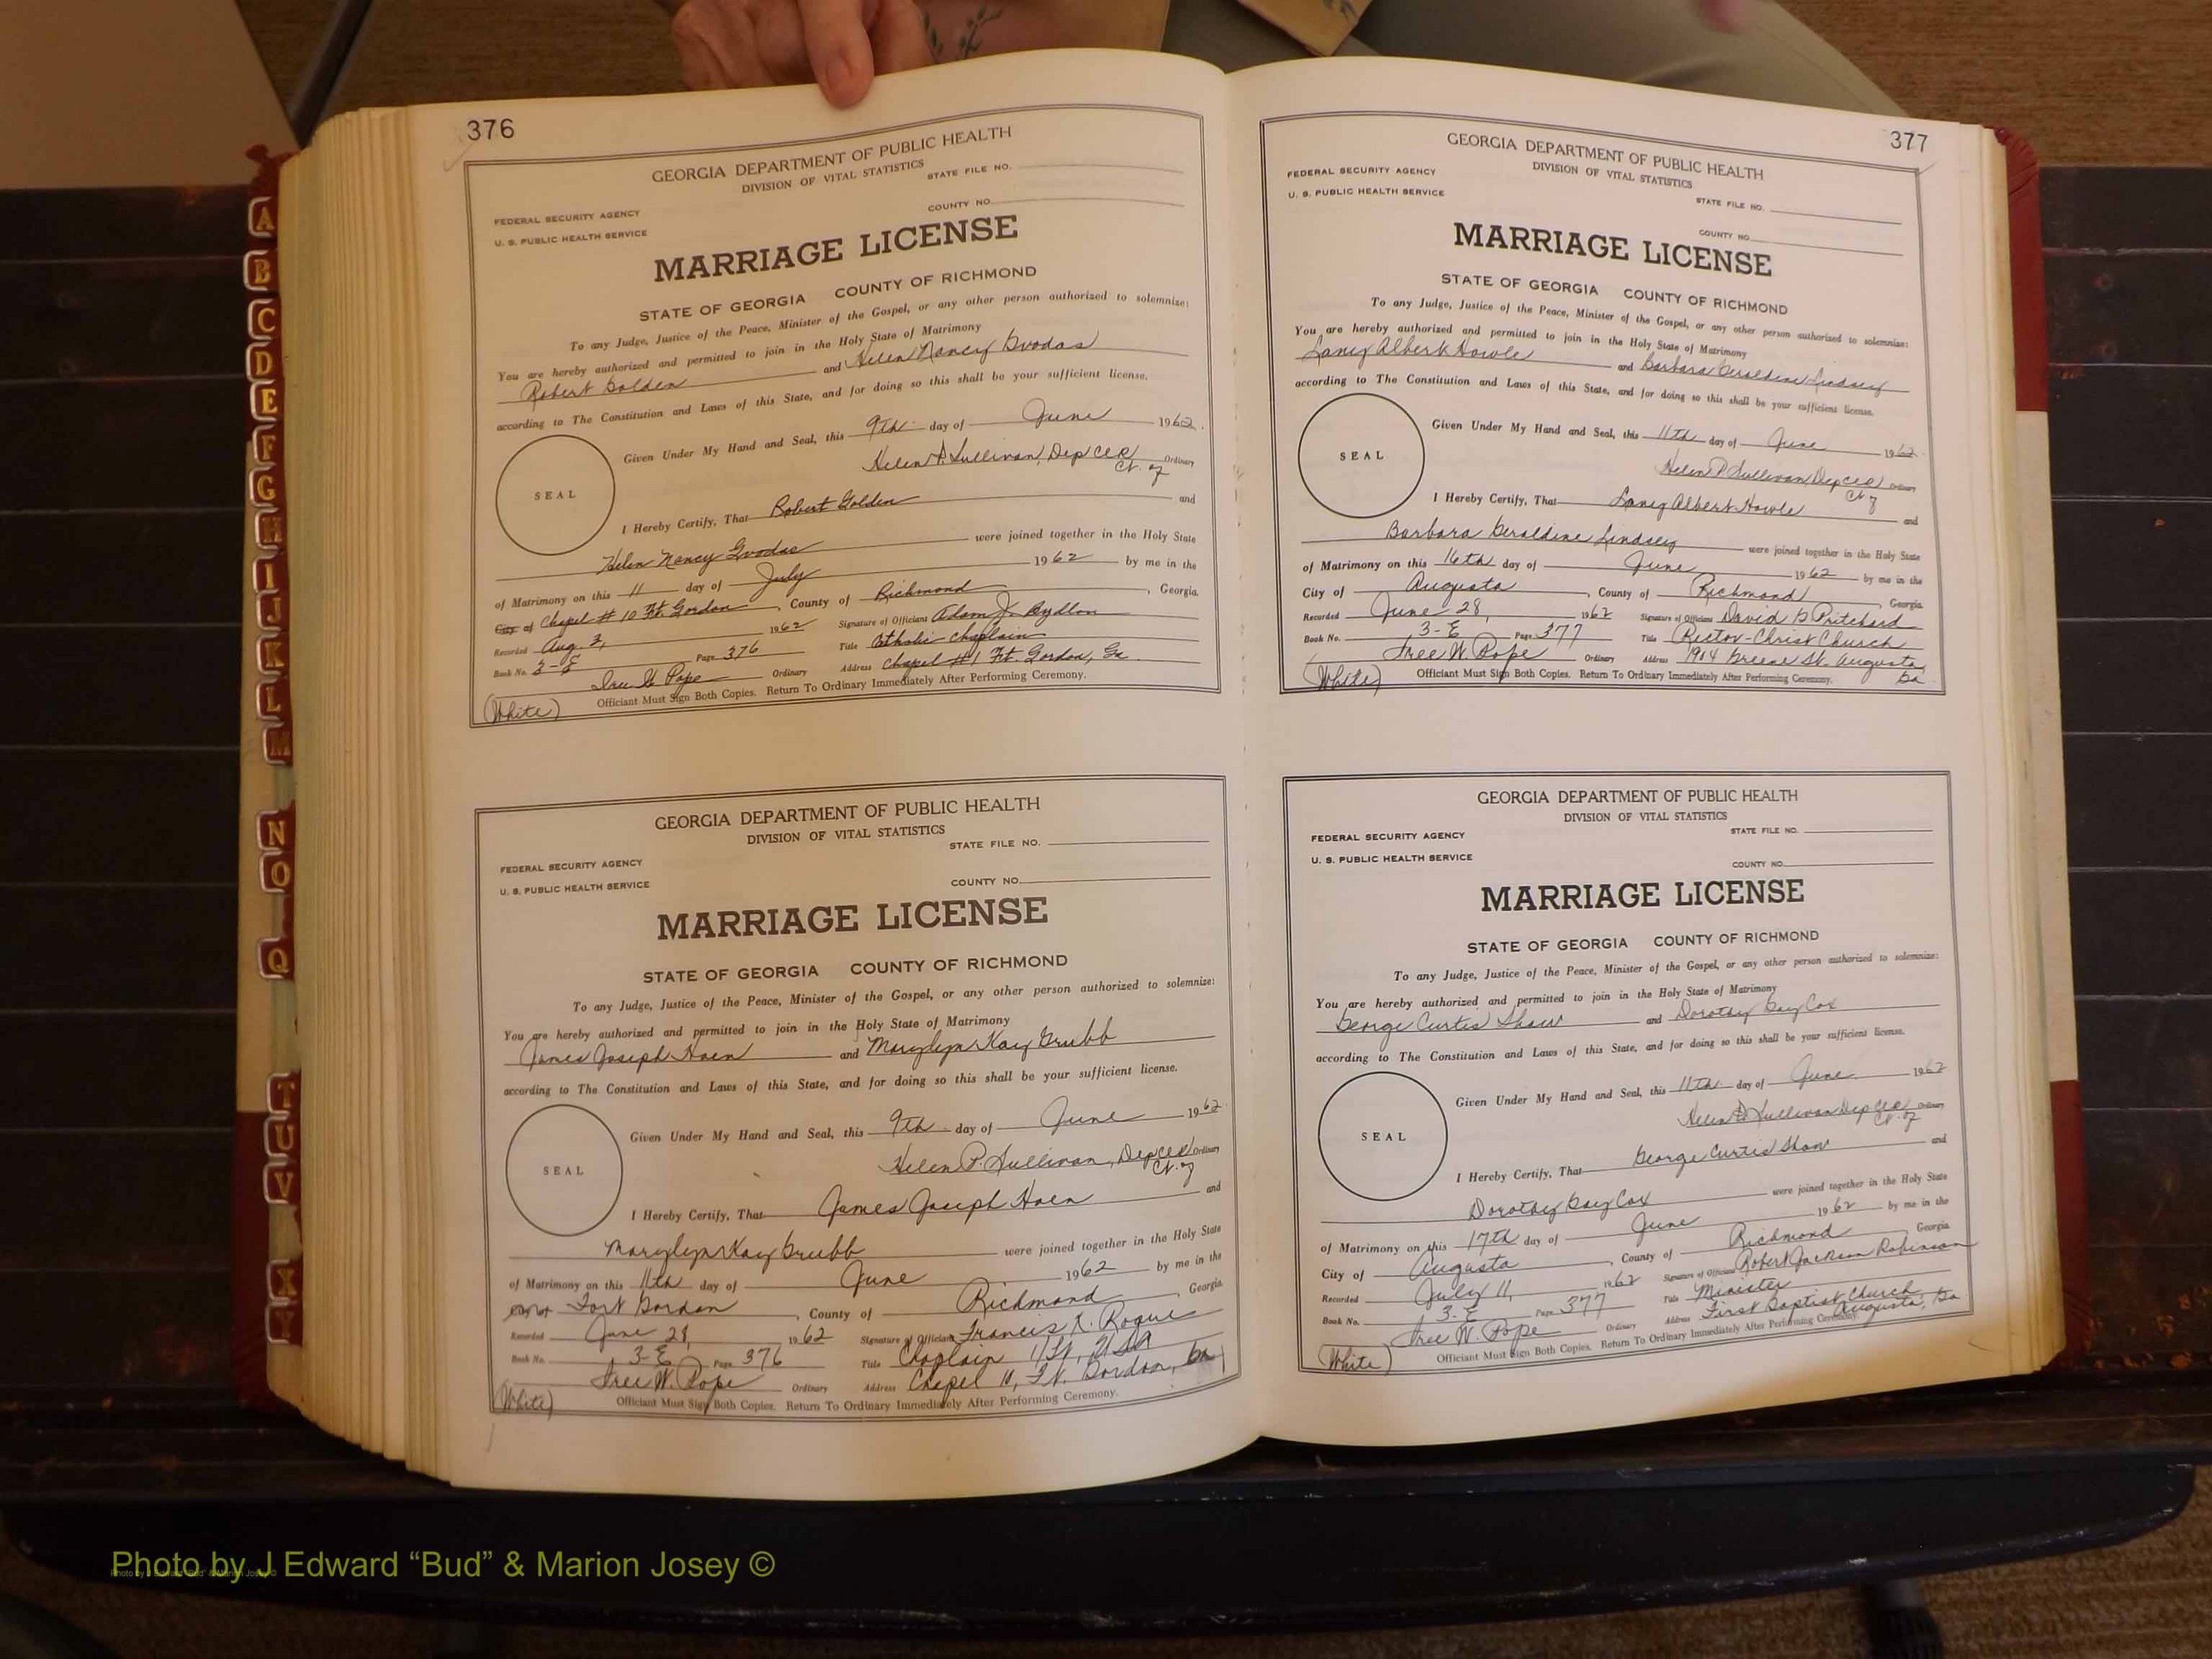 376
GEORGIA DEPARTMENT OF PUBLIC HEALTH
DIVISION OF VITAL STATISTICS
STATE FILE NO.
FEDERAL SECURITY AGENCY
COUNTY NO.
U. S. PUBLIC HEALTH SERVICE
MARRIAGE LICENSE
STATE OF GEORGIA COUNTY OF RICHMOND
To any Judge, Justice of the Peace, Minister of the Gospel, or any other person authorized to solemnize:
You are hereby authorized and permitted to join in the Holy State of Matrimony
Robert Golden and Helen Nancy Gvodas
according to The Constitution and Laws of this State, and for doing so this shall be your sufficient license.
Given Under My Hand and Seal, this 9th day of June 1962.
Helen P. Sullivan, Dep Clk Ordinary
Ct. of
SEAL
I Hereby Certify, That Robert Golden and
Helen Nancy Gvodas were joined together in the Holy State
of Matrimony on this 11 day of July 1962 by me in the
City of Chapel # 10 Ft. Gordon, County of Richmond, Georgia.
Recorded Aug. 3, 1962 Signature of Officiant Adam J. Bydlon
Book No. 3-E Page 376 Title Catholic Chaplain
Ordinary Address Chapel #1 Ft. Gordon, Ga.
Officiant Must Sign Both Copies. Return To Ordinary Immediately After Performing Ceremony.
(White)
GEORGIA DEPARTMENT OF PUBLIC HEALTH
DIVISION OF VITAL STATISTICS
STATE FILE NO.
FEDERAL SECURITY AGENCY
COUNTY NO.
U. S. PUBLIC HEALTH SERVICE
MARRIAGE LICENSE
STATE OF GEORGIA COUNTY OF RICHMOND
To any Judge, Justice of the Peace, Minister of the Gospel, or any other person authorized to solemnize:
You are hereby authorized and permitted to join in the Holy State of Matrimony
James Joseph Hoen and Marylyn Kay Grubb
according to The Constitution and Laws of this State, and for doing so this shall be your sufficient license.
Given Under My Hand and Seal, this 9th day of June 1962
Helen P. Sullivan, Dep Clk Ordinary
Ct. of
SEAL
I Hereby Certify, That James Joseph Hoen and
Marylyn Kay Grubb were joined together in the Holy State
of Matrimony on this 11th day of June 1962 by me in the
Fort Gordon, County of Richmond, Georgia.
Recorded June 21, 1962 Signature of Officiant Francis X. Rogue
Book No. 3-E Page 376 Title Chaplain 1/Lt, USA
W. Pope Ordinary Address Chapel 10, Ft. Gordon, Ga
Officiant Must Sign Both Copies. Return To Ordinary Immediately After Performing Ceremony.
(White)
377
GEORGIA DEPARTMENT OF PUBLIC HEALTH
DIVISION OF VITAL STATISTICS
FEDERAL SECURITY AGENCY
U. S. PUBLIC HEALTH SERVICE
STATE FILE NO.
COUNTY NO.
MARRIAGE LICENSE
STATE OF GEORGIA COUNTY OF RICHMOND
To any Judge, Justice of the Peace, Minister of the Gospel, or any other person authorized to solemnize:
You are hereby authorized and permitted to join in the Holy State of Matrimony
Laney Albert Howle and Barbara Geraldine Lindsey
according to The Constitution and Laws of this State, and for doing so this shall be your sufficient license.
Given Under My Hand and Seal, this 11th day of June 1962
Helen P Sullivan Dep Clk Ordinary
Ct of
SEAL
I Hereby Certify, That Laney Albert Howle and
Barbara Geraldine Lindsey were joined together in the Holy State
of Matrimony on this 16th day of June 1962 by me in the
City of Augusta, County of Richmond, Georgia
Recorded June 28, 1962 Signature of Officiant David B Pritchard
Book No. 3-E Page 377 Title Rector-Christ Church
W. Pope Ordinary Address 1904 Greene St. Augusta,
Ga
Officiant Must Sign Both Copies. Return To Ordinary Immediately After Performing Ceremony.
(White)
GEORGIA DEPARTMENT OF PUBLIC HEALTH
DIVISION OF VITAL STATISTICS
FEDERAL SECURITY AGENCY
STATE FILE NO.
U. S. PUBLIC HEALTH SERVICE
COUNTY NO.
MARRIAGE LICENSE
STATE OF GEORGIA COUNTY OF RICHMOND
To any Judge, Justice of the Peace, Minister of the Gospel, or any other person authorized to solemnize:
You are hereby authorized and permitted to join in the Holy State of Matrimony
George Curtis Shaw and Dorothy Gay Cox
according to The Constitution and Laws of this State, and for doing so this shall be your sufficient license.
Given Under My Hand and Seal, this 11th day of June 1962
Helen P. Sullivan Dep Clk Ordinary
Ct. of
SEAL
I Hereby Certify, That George Curtis Shaw and
Dorothy Gay Cox were joined together in the Holy State
of Matrimony on this 17th day of June 1962 by me in the
City of Augusta, County of Richmond, Georgia
Recorded July 11, 1962 Signature of Officiant Robert Jackson Robinson
Book No. 3-E Page 377 Title Minister
W. Pope Ordinary Address First Baptist Church
Augusta, Ga
Officiant Must Sign Both Copies. Return To Ordinary Immediately After Performing Ceremony.
(White)
A
B
C
D
E
F
G
H
I
J
K
L
M
N
O
Q
T
U
V
X
Y
Photo by J Edward “Bud” & Marion Josey ©
Photo by J Edward “Bud” & Marion Josey ©